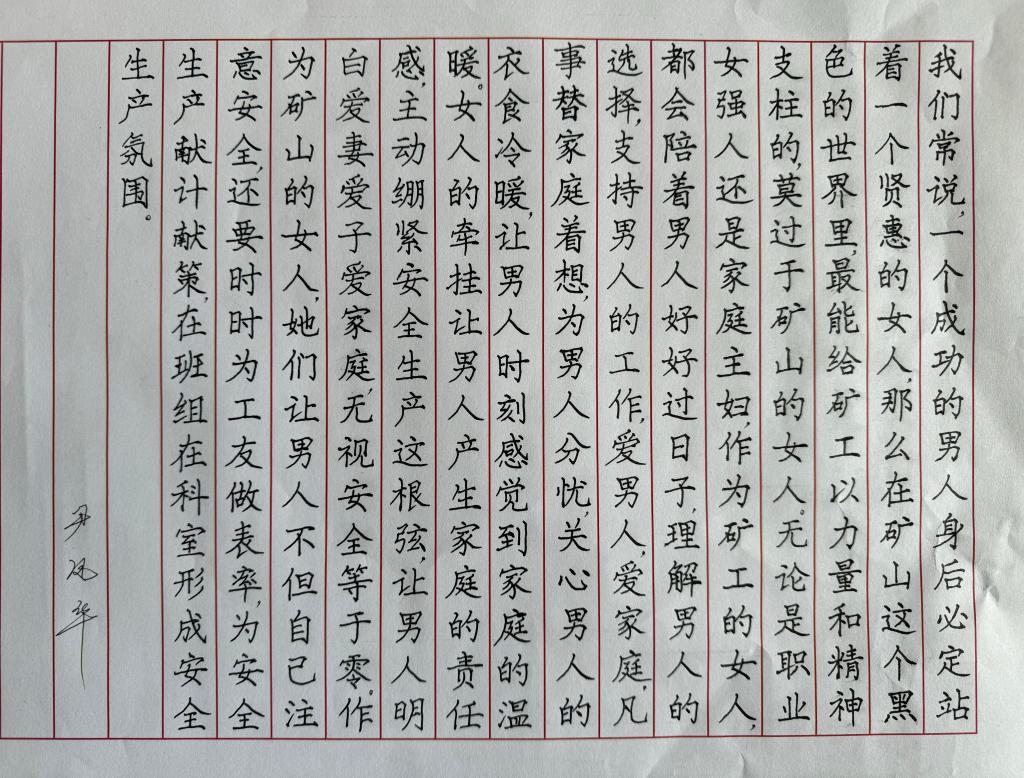 我们常说,一个成功的男人身后必定站
着一个贤惠的女人,那么在矿山这个黑
色的世界里,最能给矿工以力量和精神
支柱的,莫过于矿山的女人。无论是职业
女强人还是家庭主妇,作为矿工的女人,
都会陪着男人好好过日子,理解男人的
选择,支持男人的工作,爱男人,爱家庭,凡
事替家庭着想,为男人分忧,关心男人的
衣食冷暖,让男人时刻感觉到家庭的温
暖。女人的牵挂让男人产生家庭的责任
感,主动绷紧安全生产这根弦,让男人明
白爱妻爱子爱家庭,无视安全等于零。作
为矿山的女人,她们让男人不但自己注
意安全,还要时时为工友做表率,为安全
生产献计献策,在班组在科室形成安全
生产氛围。
尹凤华